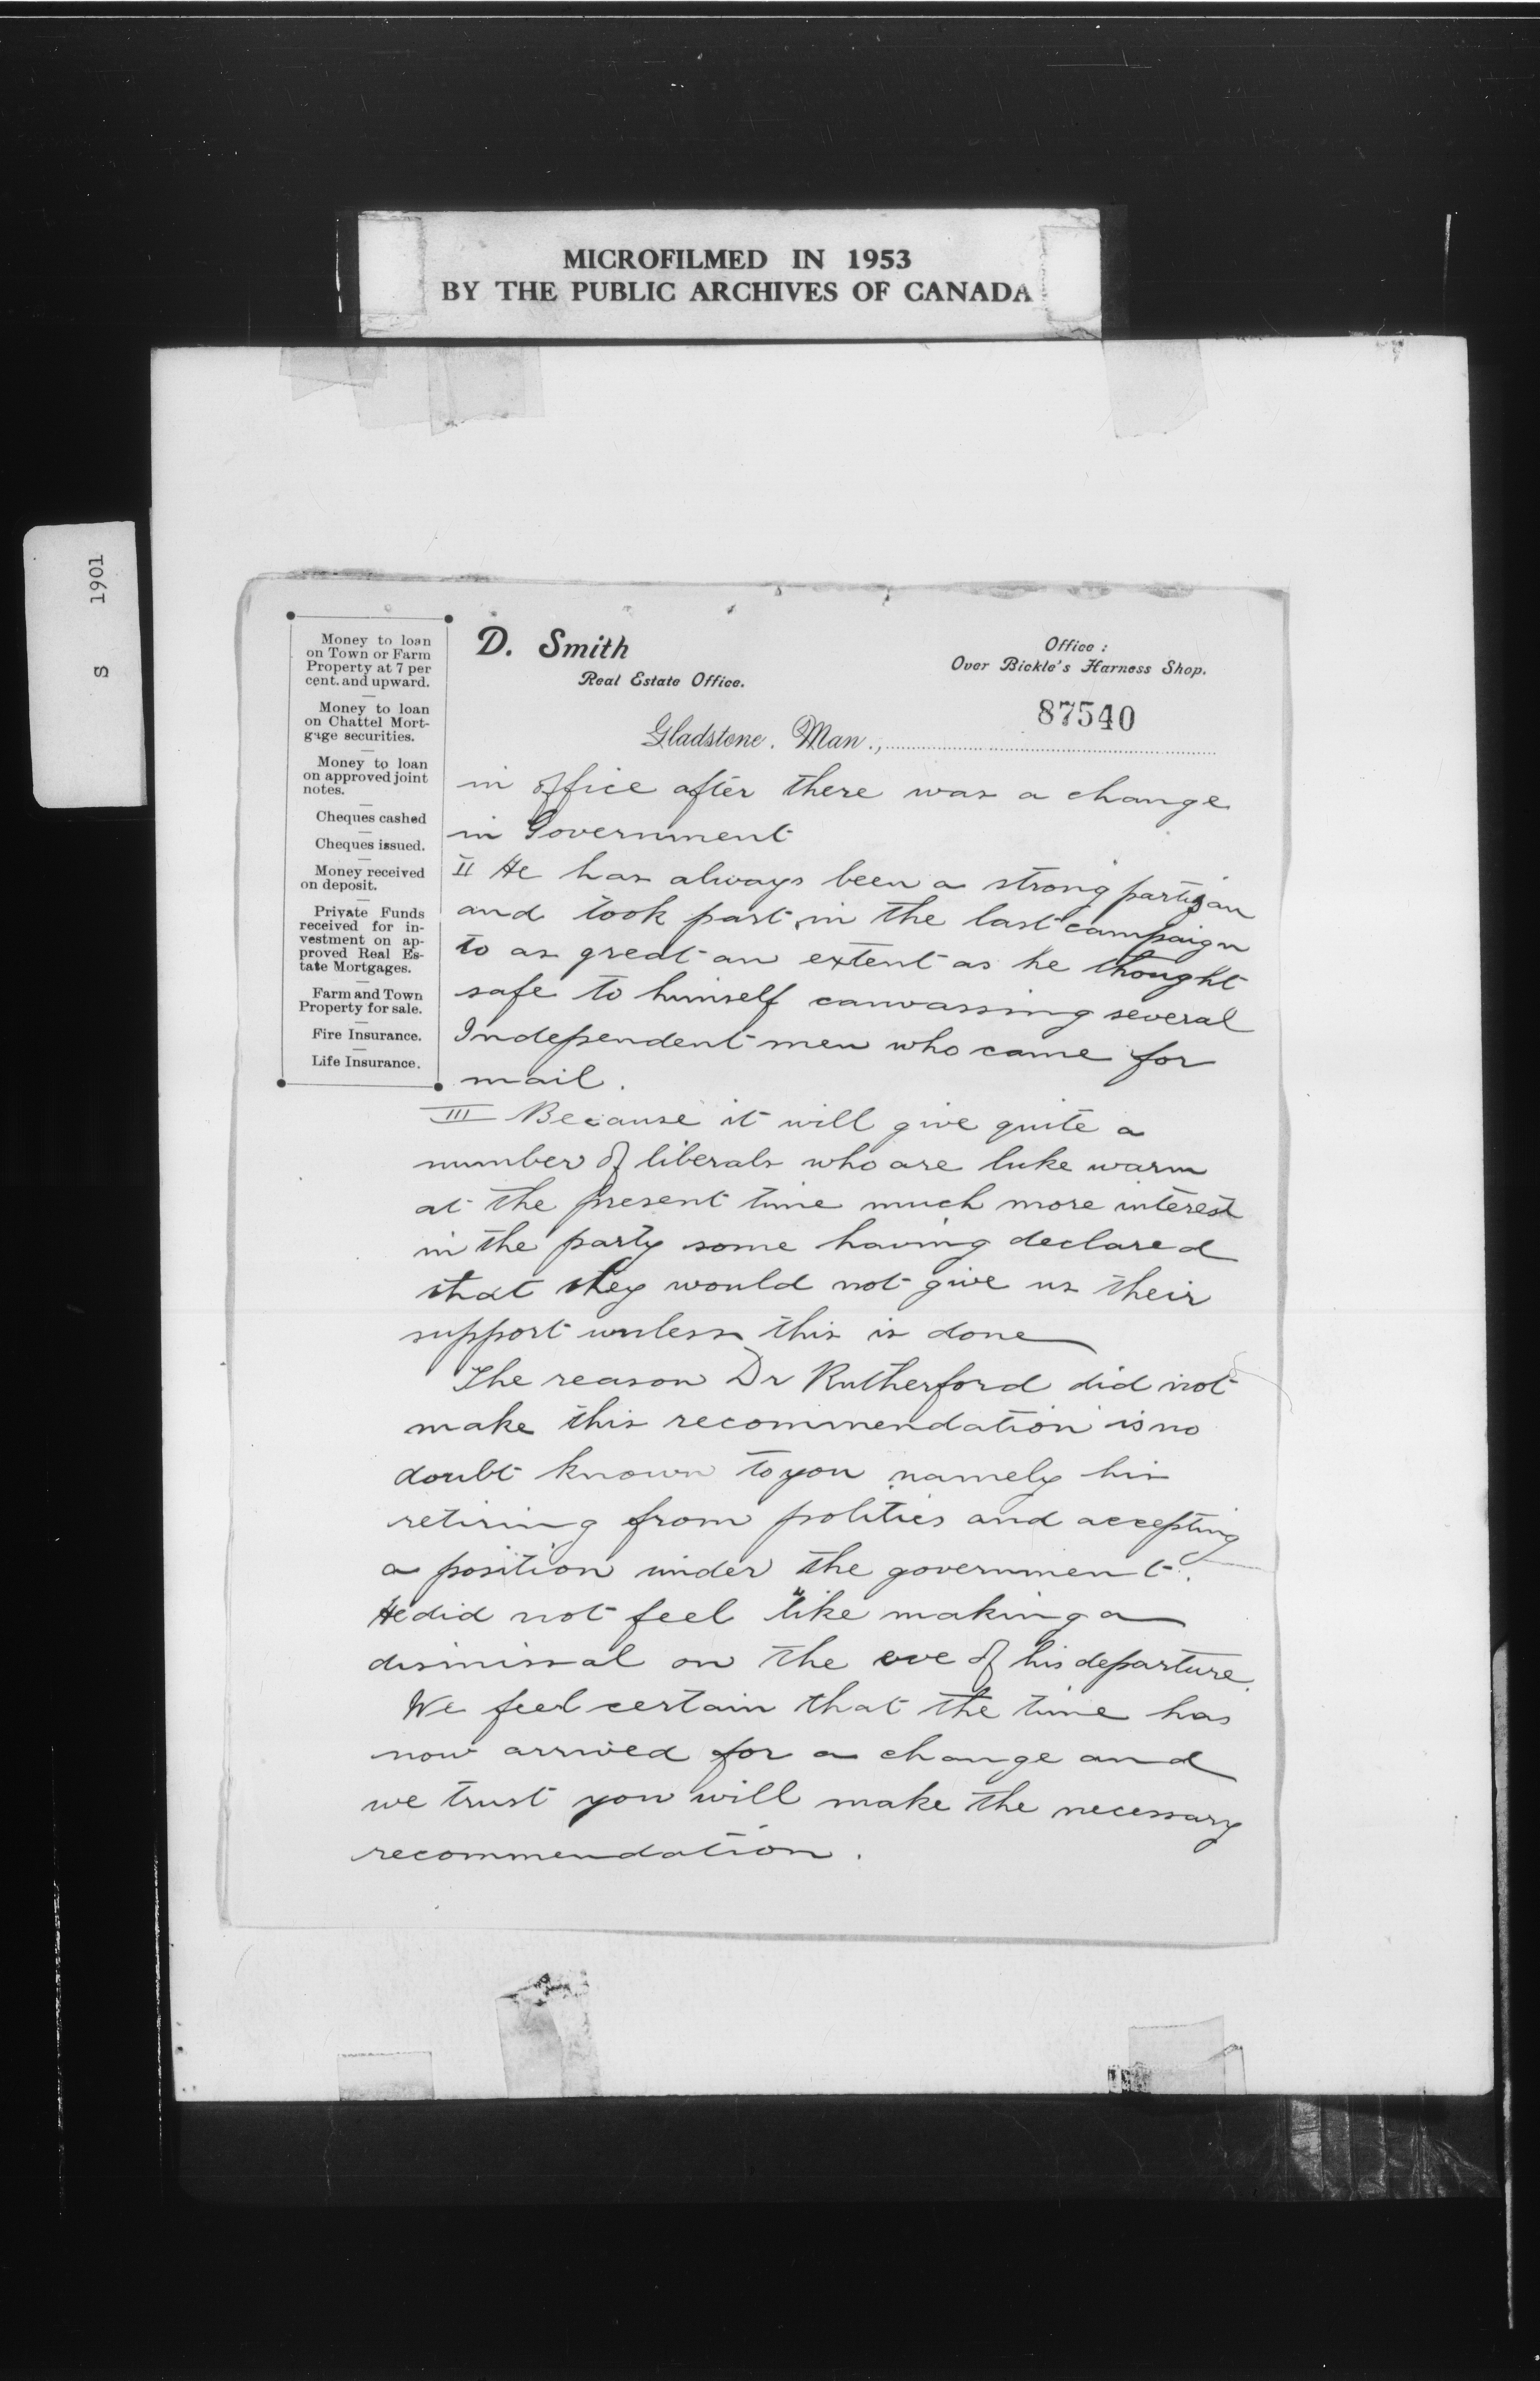 MICROFILMED IN 1953
BY THE PUBLIC ARCHIVES OF CANADA
S 1901
Money to loan
on Town or Farm
Property at 7 per
cent. and upward.
Money to loan
on Chattel Mort-
gage securities.
Money to loan
on approved joint
notes.
Cheques cashed
Cheques issued.
Money received
on deposit.
Private Funds
received for in-
vestment on ap-
proved Real Es-
tate Mortgages.
Farm and Town
Property for sale.
Fire Insurance.
Life Insurance.
D. Smith
Real Estate Office.
Office :
Over Bickle's Harness Shop.
87540
Gladstone, Man.,
in office after there was a change
in Government
II He has always been a strong partizan
and took part in the last campaign
to as great an extent as he thought
safe to himself canvassing several
Independent men who came for
mail.
III Because it will give quite a
number of liberals who are luke warm
at the present time much more interest
in the party some having declared
that they would not give us their
support unless this is done
The reason Dr Rutherford did not
make this recommendation is no
doubt known to you namely his
retiring from politics and accepting
a position under the government.
He did not feel like making a
dismissal on the eve of his departure.
We feel certain that the time has
now arrived for a change and
we trust you will make the necessary
recommendation.